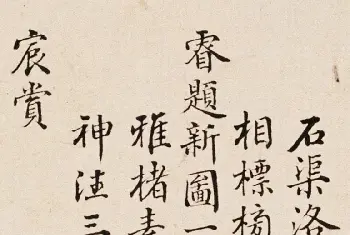 石渠洛
相標榜
睿題新圖一
雅楮素
神洼三
宸賞